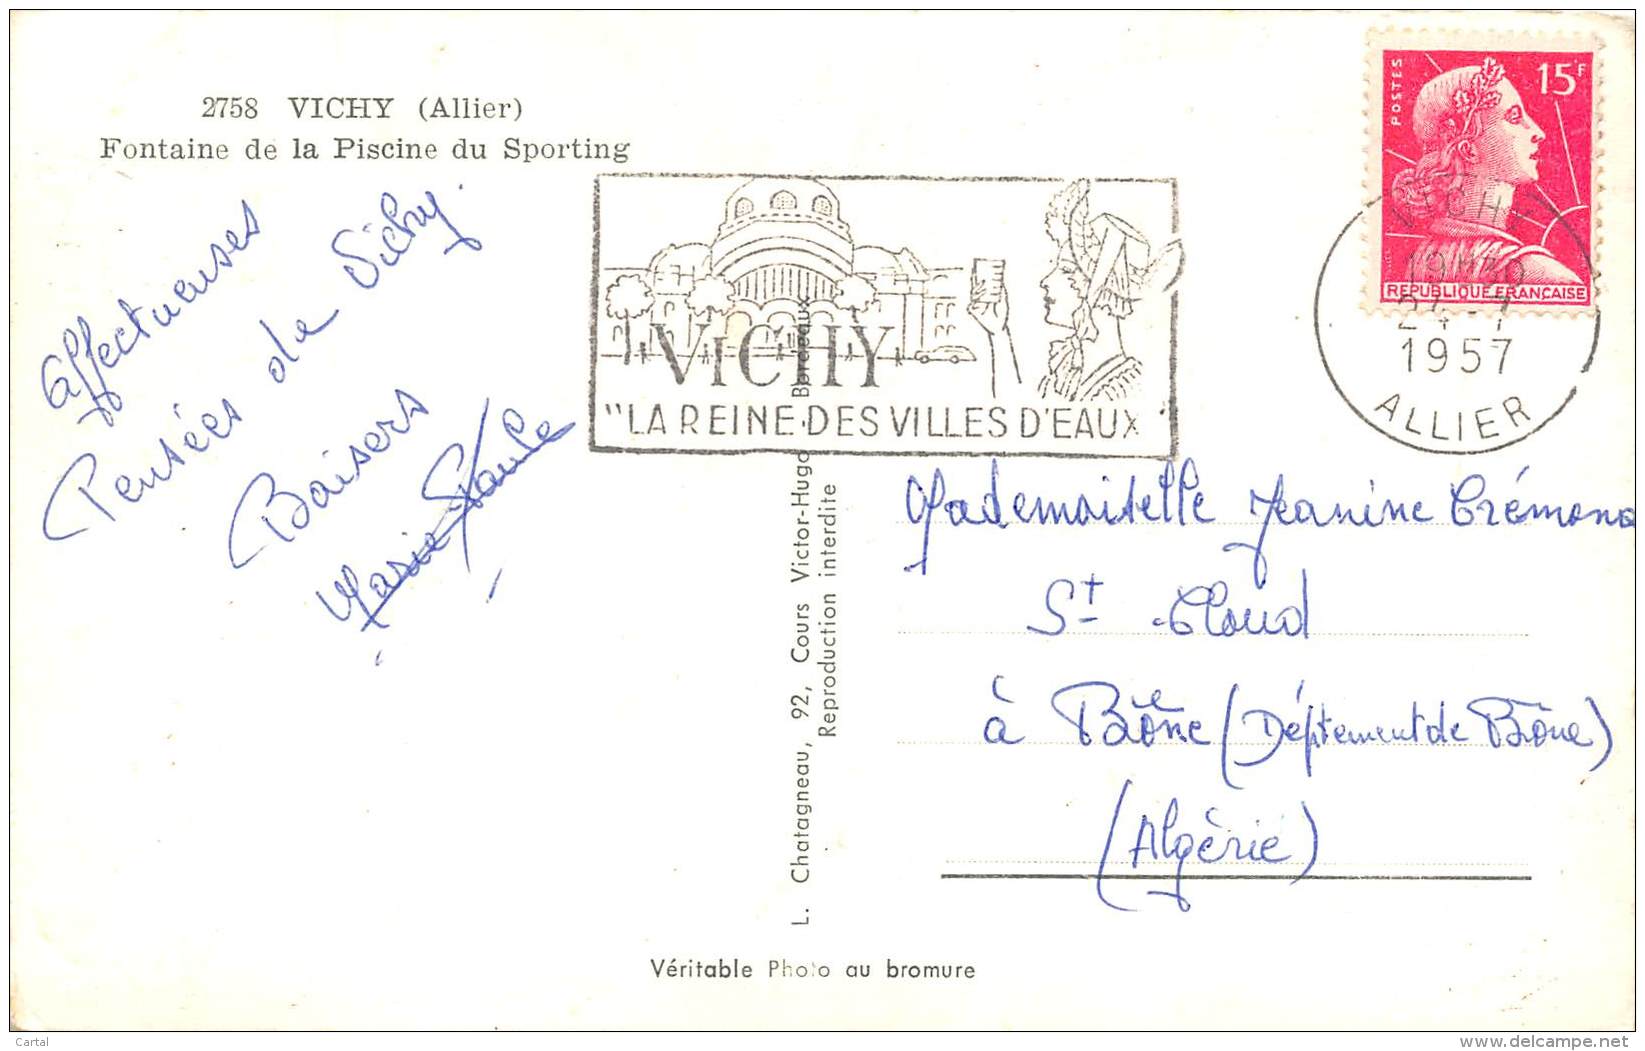 2758 VICHY (Allier)
Fontaine de la Piscine du Sporting
Affectueuses
Pensées de Vichy.
Baisers
Marie Paule
VICHY
"LA REINE DES VILLES D'EAUX"
POSTES
15F
REPUBLIQUE FRANÇAISE
VICHY
19H30
24-7
1957
ALLIER
L. Chatagneau, 92, Cours Victor-Hugo Bordeaux
Reproduction interdite
Mademoiselle Jeanine Crémona
St Cloud
à Bône (Déptement de Bône)
(Algérie)
Véritable Photo au bromure
Cartal
www.delcampe.net